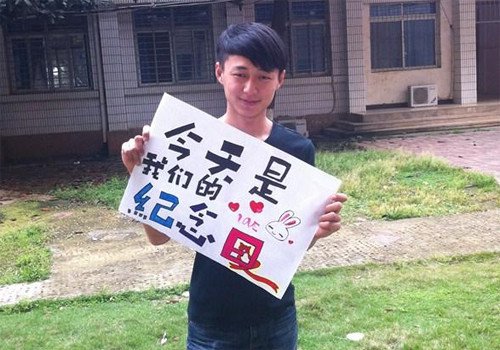 今天是
我们的
纪念日